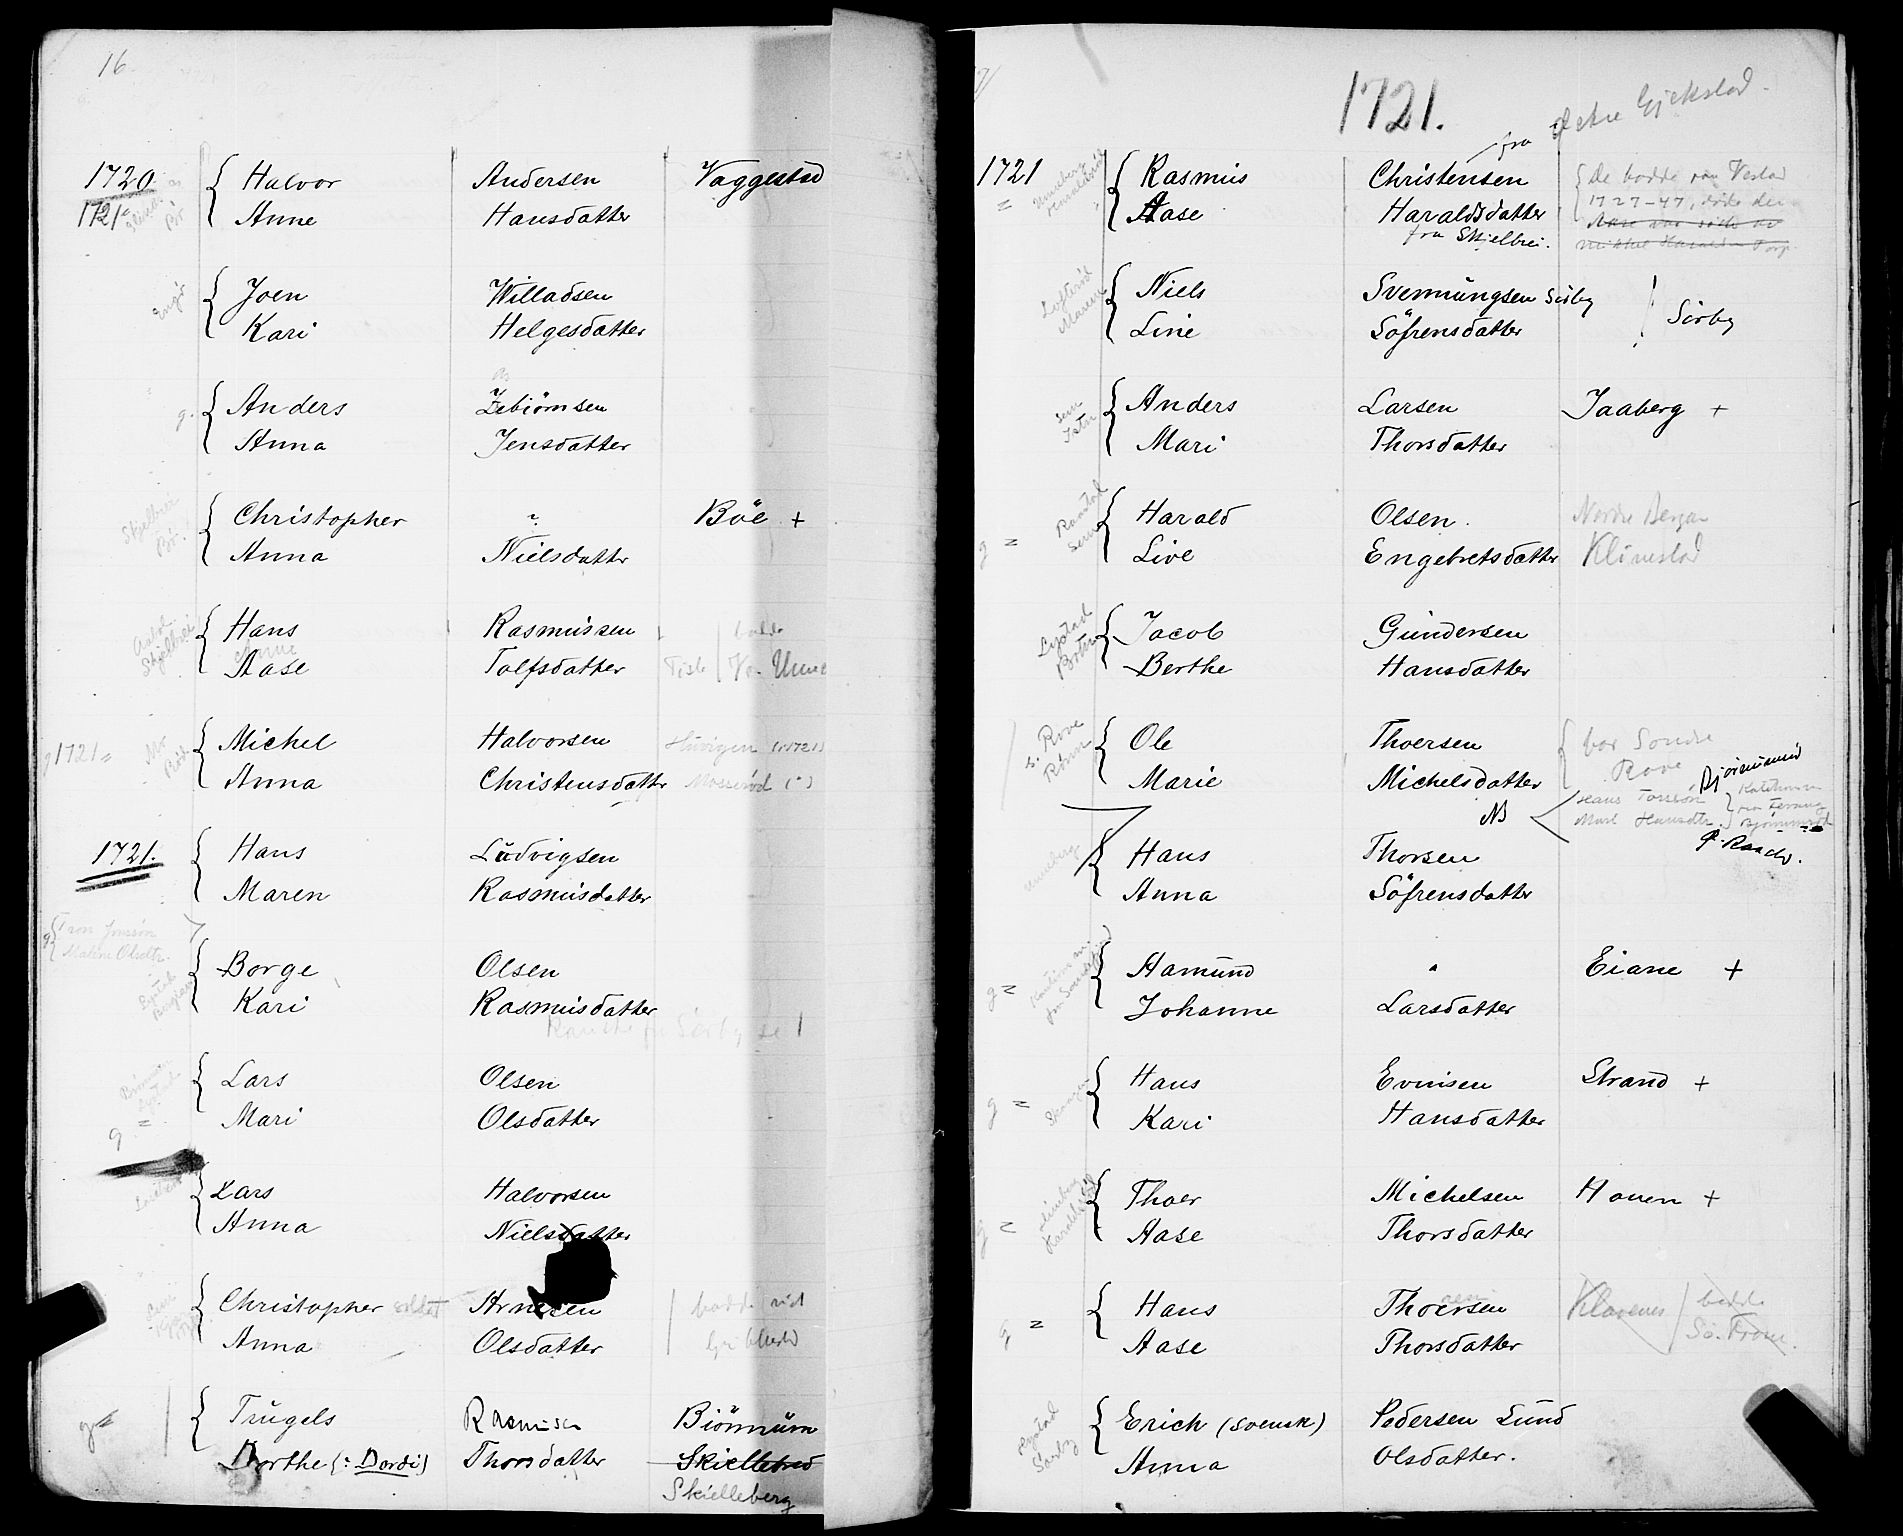 16
1720 Halvor Andersen Vaggestad
1721 Anne Hansdatter
Joen Willadsen
Kari Helgesdatter
g. Anders Zebiörnsen
Anna Jensdatter
Christopher " Böe +
Anna Nielsdatter
Hans Rasmussen
Aase Tolfsdatter
g 1721 = Michel Halvorsen
Anna Christensdatter
1721. Hans Ludvigsen
Maren Rasmusdatter
Borge Olsen
Kari Rasmusdatter
Lars Olsen
g = Mari Olsdatter
Lars Halvorsen
Anna Nielsdatter
Christopher soldat Arnesen
Anna Olsdatter
g = Trugels Rasmusen Biönnum
Dorthe (: Dordi) Thorsdatter Skiellebred
Skielleberg
1721.
fra
1721 Rasmus Christensen
= Aase Haraldsdatter
fra Skjelbrei.
Niels Svennungsen Sörby
Line Söfrensdatter Sörby
Anders Larsen Jaaberg +
Mari Thorsdatter
Harald Olsen.
g = Live Engebretsdatter Klinestad
Jacob Gundersen
Berthe Hansdatter
Ole Thoersen bor Söndre
Marie Michelsdatter Rove
NB
Hans Thorsen
Anna Söfrensdatter
Aamund " Eiane +
g = Johanne Larsdatter
Hans Evinsen Strand +
g = Kari Hansdatter
Thoer Michelsen Houen +
g = Aase Thorsdatter
Hans Thoersen Klavenes
g = Aase Thorsdatter
Erich (svensk) Pedersen Lund
Anna Olsdatter.